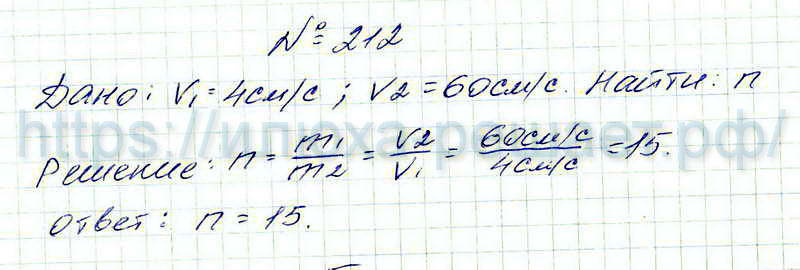 № 212
Дано: V₁ = 4см/с ; V2 = 60см/с. Найти: n
Решение: n = m₁/m2 = V2/V₁ = 60см/с / 4см/с = 15.
Ответ: n = 15.